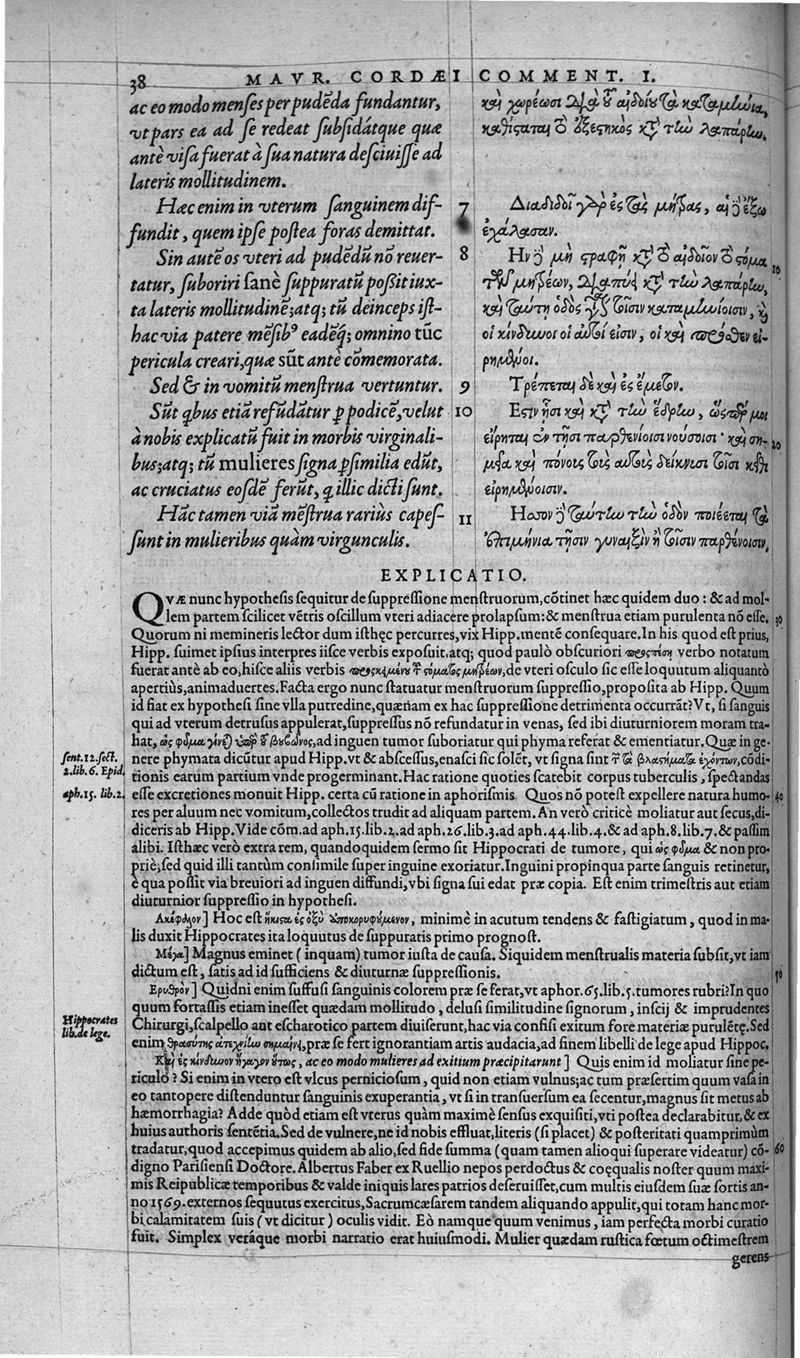 38 MAVR. CORDÆI COMMENT. I.
ac eo modo menses per pudēda fundantur,
vt pars ea ad se redeat subsidátque quæ
antè visa fuerat à sua natura desciuisse ad
lateris mollitudinem.
Hæc enim in vterum sanguinem dif-
fundit, quem ipse postea foras demittat.
Sin autē os vteri ad pudēdū nō reuer-
tatur, suboriri sanè suppuratū possit iux-
ta lateris mollitudinē; atq; tū deinceps ist-
hac via patere mēsib⁹ eadēq; omnino tūc
pericula creari, quæ sūt antè cōmemorata.
Sed & in vomitū menstrua vertuntur.
Sūt qbus etiā refūdātur p podicē, velut
à nobis explicatū fuit in morbis virginali-
bus; atq; tū mulieres signa psimilia edūt,
ac cruciatus eosdē ferūt, q illic dicti sunt.
Hāc tamen viā mēstrua rarius capes-
sunt in mulieribus quàm virgunculis.
καὶ χωρέωσι διὰ τοῦ αἰδοίου τὰ καταμήνια,
καθίσταται τὸ ἐξεστηκὸς κατὰ τὴν λαπάρην.
7 Διαδιδοῖ γὰρ ἐς τὰς μήτρας, αἱ δὲ ἔξω
ἐχάλασαν.
8 Ην δὲ μὴ στραφῇ κατὰ τὸ αἰδοῖον τὸ στόμα
τῶν μητρέων, διαπυΐ κατὰ τὴν λαπάρην, 10
καὶ ταύτῃ ὁδὸς τοῖσιν καταμηνίοισιν, καὶ
οἱ κίνδυνοι οἱ αὐτοί εἰσιν, οἱ καὶ πρόσθεν εἰ-
ρημένοι.
9 Τρέπεται δὲ καὶ ἐς ἔμετον.
10 Εστιν ᾗσι καὶ κατὰ τὴν ἕδρην, ὥσπερ μοι
εἴρηται ἐν τῇσι παρθενίοισι νούσοισι· καὶ ση- 20
μεῖα καὶ πόνους τοὺς αὐτοὺς δείκνυσι τοῖσι κεῖθι
εἰρημένοισιν.
11 Ησσον δὲ ταύτην τὴν ὁδὸν ποιέεται τὰ
ἐπιμήνια τῇσιν γυναιξὶν ἢ τοῖσιν παρθένοισιν.
EXPLICATIO.
QVÆ nunc hypothesis sequitur de suppressione menstruorum, cōtinet hæc quidem duo: & ad mol-
lem partem scilicet vētris oscillum vteri adiacere prolapsum: & menstrua etiam purulenta nō esse. 30
Quorum ni memineris lector dum isthęc percurres, vix Hipp. mentē consequare. In his quod est prius,
Hipp. suimet ipsius interpres iisce verbis exposuit, atq; quod paulò obscuriori προσπέσῃ verbo notatum
fuerat antè ab eo, hisce aliis verbis προσκειμένου τοῦ στόματος μητρέων, de vteri osculo sic esse loquutum aliquantò
apertiùs, animaduertes. Facta ergo nunc statuatur menstruorum suppressio, proposita ab Hipp. Quum
id fiat ex hypothesi sine vlla putredine, quænam ex hac suppressione detrimenta occurrāt? Vt, si sanguis
qui ad vterum detrusus appulerat, suppressus nō refundatur in venas, sed ibi diuturniorem moram tra-
hat, ὡς φῦμα γίνεται ὑπὲρ τοῦ βουβῶνος, ad inguen tumor suboriatur qui phyma referat & ementiatur. Quæ in ge-
sent. 12. sect. 2. lib. 6. Epid.
nere phymata dicūtur apud Hipp. vt & abscessus, enasci sic solēt, vt signa sint τὰ βλαστήματα ἐχόντων, cōdi-
tionis earum partium vnde progerminant. Hac ratione quoties scatebit corpus tuberculis, spectandas
aph. 15. lib. 2.
esse excretiones monuit Hipp. certa cū ratione in aphorismis. Quos nō potest expellere natura humo- 40
res per aluum nec vomitum, collectos trudit ad aliquam partem. An verò criticè moliatur aut secus, di-
diceris ab Hipp. Vide cōm. ad aph. 15. lib. 2. ad aph. 26. lib. 3. ad aph. 44. lib. 4. & ad aph. 8. lib. 7. & passim
alibi. Isthæc verò extra rem, quandoquidem sermo sit Hippocrati de tumore, qui ὡς φῦμα & non pro-
priè; sed quid illi tantùm consimile super inguine exoriatur. Inguini propinqua parte sanguis retinetur,
è qua possit via breuiori ad inguen diffundi, vbi signa sui edat præ copia. Est enim trimestris aut etiam
diuturnior suppressio in hypothesi.
Ακέφαλον] Hoc est ἥκιστα ἐς ὀξὺ ἀποκορυφούμενον, minimè in acutum tendens & fastigiatum, quod in ma-
lis duxit Hippocrates ita loquutus de suppuratis primo prognost.
Μέγα] Magnus eminet (inquam) tumor iusta de causa. Siquidem menstrualis materia subsit, vt iam
dictum est, satis ad id sufficiens & diuturnæ suppressionis. 50
Ερυθρὸν] Quidni enim suffusi sanguinis colorem præ se ferat, vt aphor. 65. lib. 5. tumores rubri? In quo
quum fortassis etiam inesset quædam mollitudo, delusi similitudine signorum, inscij & imprudentes
Hippocrates lib. de lege.
Chirurgi, scalpello aut escharotico partem diuiserunt, hac via confisi exitum fore materiæ purulētę. Sed
enim θρασύτης ἀτεχνίην σημαίνει, præ se fert ignorantiam artis audacia, ad finem libelli de lege apud Hippoc.
Καὶ ἐς κίνδυνον ἤγαγον οὕτως, ac eo modo mulieres ad exitium præcipitarunt] Quis enim id moliatur sine pe-
riculo? Si enim in vtero est vlcus perniciosum, quid non etiam vulnus; ac tum præsertim quum vasa in
eo tantopere distenduntur sanguinis exuperantia, vt si in transuersum ea secentur, magnus sit metus ab
hæmorrhagia? Adde quòd etiam est vterus quàm maximè sensus exquisiti, vti postea declarabitur, & ex
huius authoris sentētia. Sed de vulnere, ne id nobis effluat, literis (si placet) & posteritati quamprimùm
tradatur, quod accepimus quidem ab alio, sed fide summa (quam tamen alioqui superare videatur) cō- 60
digno Parisiensi Doctore. Albertus Faber ex Ruellio nepos perdoctus & coęqualis noster quum maxi-
mis Reipublicæ temporibus & valde iniquis lares patrios deseruisset, cum multis eiusdem suæ sortis an-
no 1569. externos sequutus exercitus, Sacrumcæsarem tandem aliquando appulit, qui totam hanc mor-
bi calamitatem suis (vt dicitur) oculis vidit. Eò namque quum venimus, iam perfecta morbi curatio
fuit. Simplex veráque morbi narratio erat huiusmodi. Mulier quædam rustica fœtum octimestrem
gerens